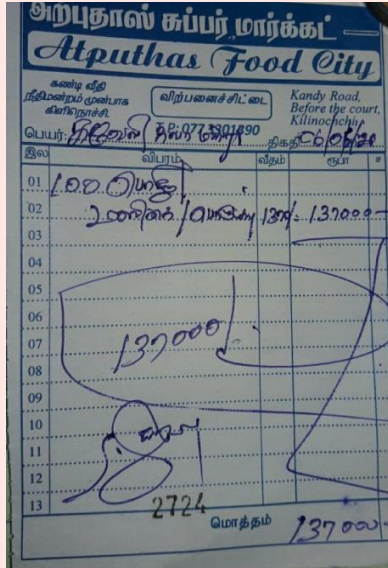 அற்புதாஸ் சுப்பர் மார்க்கட்
Atputhas Food City
கண்டி வீதி
நீதிமன்றம் முன்பாக
கிளிநொச்சி.
விற்பனைச்சிட்டை
Kandy Road,
Before the court,
Kilinochchi.
பெயர்: T.P: 0773301890 திகதி
இல விபரம் வீதம் ரூபா
01
02 137/- 137000-
03
04
05
06
07 137000/-
08
09
10
11
12
13 2724
மொத்தம் 137000-